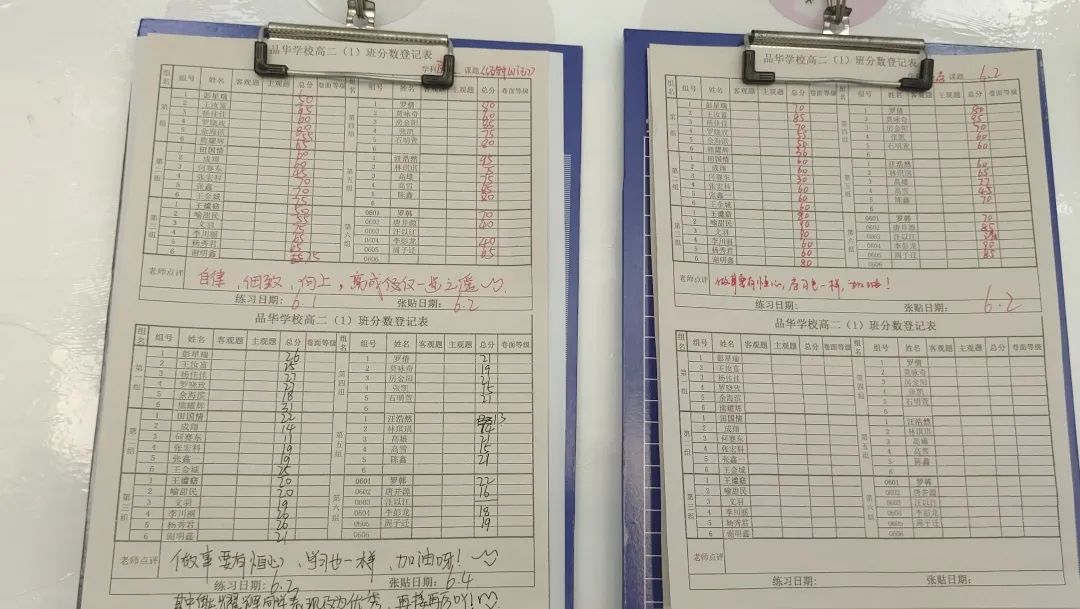 品华学校高二（1）班分数登记表
学科 课题
组名 组号 姓名 客观题 主观题 总分 卷面等级 组名 组号 姓名 客观题 主观题 总分 卷面等级
第一组
1 彭星瑞 50
2 王汝富 65
3 杨佳佳 60
4 罗晓玫 60
5 余海滨 55
6 熊耀辉 65
第二组
1 田国情 60
2 成翔 60
3 何赛东 45
4 张宏科 70
5 张鑫 70
6 王金城 75
第三组
1 王黛 50
2 喻甜民 55
3 文羽 75
4 李川丽 65
5 杨秀君 65
6 谢明鑫 75
第四组
1 罗倩 80
2 莫咏奇
3 房金阳
4 张凯 75
5 石明萱 80
6
第五组
1 汪浩然 45
2 林琪琪 75
3 高雄 75
4 高雪
5 陈鑫 80
6
第六组
0601 罗韩 70
0602 唐井源 40
0603 汪以江
0604 李彭龙 40
0605 周子迁 65
0606
老师点评 自律，细致，向上，离成绩仅一步之遥
练习日期：6.1 张贴日期：6.2
品华学校高二（1）班分数登记表
组名 组号 姓名 客观题 主观题 总分 卷面等级 组名 组号 姓名 客观题 主观题 总分 卷面等级
第一组
1 彭星瑞 26
2 王汝富 25
3 杨佳佳 27
4 罗晓玫 21
5 余海滨 18
6 熊耀辉 31
第二组
1 田国情 22
2 成翔 14
3 何赛东 11
4 张宏科 19
5 张鑫 19
6 王金城 25
第三组
1 王黛 20
2 喻甜民 20
3 文羽 19
4 李川丽 26
5 杨秀君 20
6 谢明鑫 21
第四组
1 罗倩 21
2 莫咏奇 19
3 房金阳 21
4 张凯 15
5 石明萱 21
6
第五组
1 汪浩然 13
2 林琪琪 14
3 高雄 21
4 高雪 15
5 陈鑫 21
6
第六组
0601 罗韩 22
0602 唐井源 16
0603 汪以江
0604 李彭龙 18
0605 周子迁 19
0606
老师点评 做事要有恒心，学习也一样，加油呀！
练习日期：6.2 张贴日期：6.4
品华学校高二（1）班分数登记表
课题 6.2
组名 组号 姓名 客观题 主观题 总分 卷面等级 组名 组号 姓名 客观题 主观题 总分 卷面等级
第一组
1 彭星瑞 70
2 王汝富 85
3 杨佳佳 70
4 罗晓玫 55
5 余海滨 50
6 熊耀辉
第二组
1 田国情 60
2 成翔 60
3 何赛东 50
4 张宏科 60
5 张鑫 50
6 王金城 60
第三组
1 王黛 80
2 喻甜民 90
3 文羽 80
4 李川丽 60
5 杨秀君 60
6 谢明鑫 80
第四组
1 罗倩 80
2 莫咏奇 95
3 房金阳 70
4 张凯 60
5 石明萱 60
6
第五组
1 汪浩然 60
2 林琪琪 65
3 高雄 77
4 高雪 45
5 陈鑫 70
6
第六组
0601 罗韩 70
0602 唐井源 85
0603 汪以江
0604 李彭龙 90
0605 周子迁 85
0606
老师点评 做事要有恒心，学习也一样，加油！
练习日期： 张贴日期：6.2
品华学校高二（1）班分数登记表
组名 组号 姓名 客观题 主观题 总分 卷面等级 组名 组号 姓名 客观题 主观题 总分 卷面等级
第一组
1 彭星瑞
2 王汝富
3 杨佳佳
4 罗晓玫
5 余海滨
6 熊耀辉
第二组
1 田国情
2 成翔
3 何赛东
4 张宏科
5 张鑫
6 王金城
第三组
1 王黛
2 喻甜民
3 文羽
4 李川丽
5 杨秀君
6 谢明鑫
第四组
1 罗倩
2 莫咏奇
3 房金阳
4 张凯
5 石明萱
6
第五组
1 汪浩然
2 林琪琪
3 高雄
4 高雪
5 陈鑫
6
第六组
0601 罗韩
0602 唐井源
0603 汪以江
0604 李彭龙
0605 周子迁
0606
老师点评
练习日期： 张贴日期：